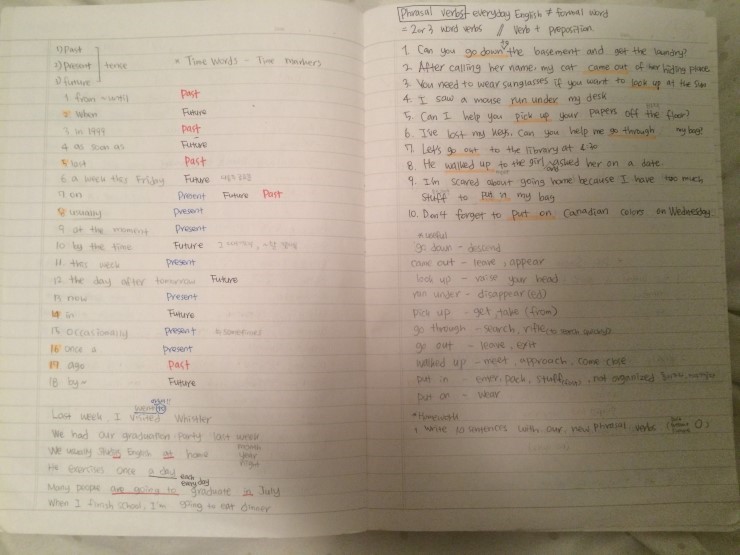 1) past
2) present tense
3) future
* Time words - Time markers
1 from ~ until Past
2 When Future
3 in 1999 Past
4 as soon as Future
5 last Past
6 a week this Friday Future
7 on Present Future Past
8 usually Present
9 at the moment Present
10 by the time Future
11. this week Present
12. the day after tomorrow Future
13 now Present
14 in Future
15 occasionally Present = sometimes
16 once a present
17 ago past
18 by ~ Future
went to
Last week, I visited Whistler
We had our graduation party last week
month
We usually study English at home year
night
He exercises once a day
each
every day
Many people are going to graduate in July
When I finish school, I'm going to eat dinner
Phrasal verbs - everyday English ≠ formal word
= 2 or 3 word verbs // verb + preposition
to
1. Can you go down the basement and get the laundry?
2. After calling her name, my cat came out of her hiding place
3. You need to wear sunglasses if you want to look up at the sun
4. I saw a mouse run under my desk
5. Can I help you pick up your papers off the floor?
6. I've lost my keys. Can you help me go through my bag?
7. Let's go out to the library at 6:30
8. He walked up to the girl and asked her on a date
9. I'm scared about going home because I have too much
stuff to put in my bag
10. Don't forget to put on Canadian colors on Wednesday
* useful
go down - descend
came out - leave, appear
look up - raise your head
run under - disappear (ed)
pick up - get, take (from)
go through - search, rifle (to search quickly)
go out - leave, exit
walked up - meet, approach, come close
put in - enter, pack, stuff, not organized
put on - wear
* Homework
+ write 10 sentences with our new phrasal verbs